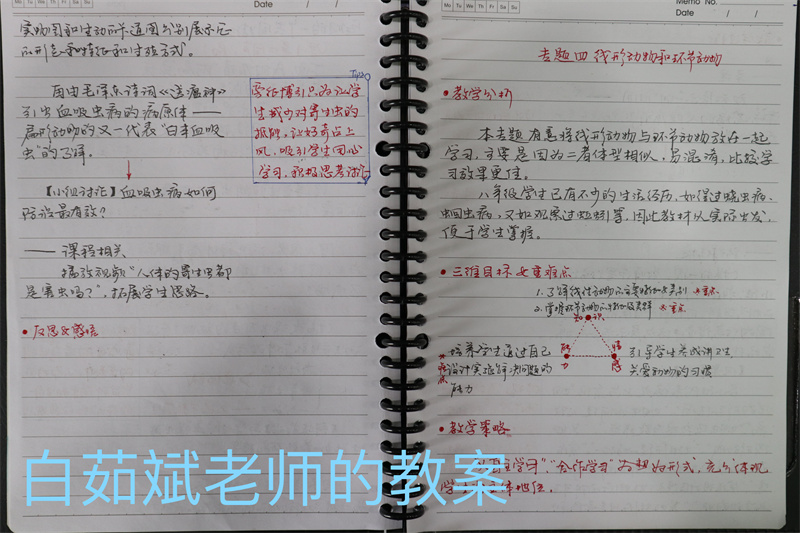 实物图和生动的卡通图分别展示它
的形态和特征和生殖方式。
再由毛泽东诗词《送瘟神》
引出血吸虫病的病原体——
扁形动物的又一代表“日本血吸
虫”的了解。
【小组讨论】血吸虫病如何
防治最有效?
—— 课程相关
播放视频“人体的寄生虫都
是害虫吗?”,拓展学生思路。
• 反思及感悟
旁征博引只为让学
生减少对寄生虫的
抵触,让好奇占上
风,吸引学生回心
学习,积极思考讨论
Memo No.
Date / /
Date / /
Mo Tu We Th Fr Sa Su
专题四 线形动物和环节动物
• 教学分析
本专题有意将线形动物与环节动物放在一起
学习,主要是因为二者体型相似,易混淆,比较学
习效果更佳。
八年级学生已有不少的生活经历,如得过蛲虫病、
蛔虫病,又如观察过蚯蚓等,因此教材从实际出发,
便于学生掌握。
• 三维目标及重难点
1. 了解线性动物的主要特征及类别 ※重点
2. 掌握环节动物的特征及类群 ※重点
知识
能力
情感
※难点
培养学生通过自己
设计实验解决问题的
能力
引导学生养成讲卫生
关爱动物的习惯
• 教学策略
学习”,“合作学习”为主的形式,充分体现
学生主体地位。
白茹斌老师的教案